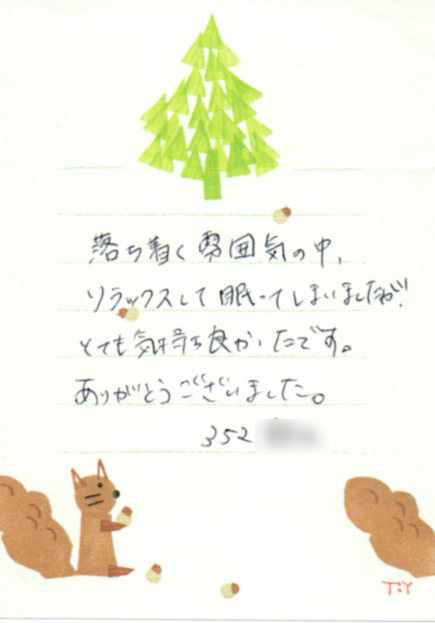 落ち着く雰囲気の中、
リラックスして眠ってしまいましたが!
とても気持ち良かったです。
ありがとうございました。
352
T.Y